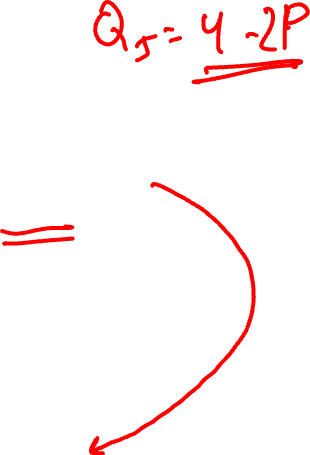 Q_J = 4 - 2P